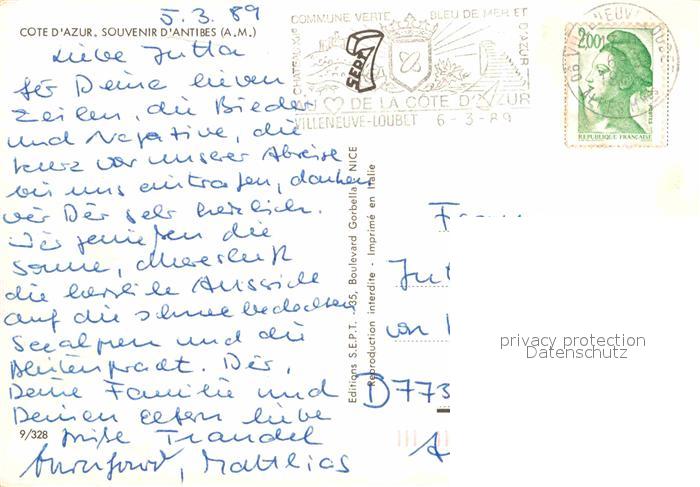 5.3.89
COTE D'AZUR, SOUVENIR D'ANTIBES (A.M.)
Liebe Jutta
für Deine lieben
Zeilen, die Bieder
und Negative, die
kurz vor unserer Abreise
bei uns eintrafen, danken
wir Dir sehr herzlich.
Wir genießen die
Sonne,
die herrliche Aussicht
auf die schneebedeckten
Seealpen und die
Blütenpracht. Dir,
Deine Familie und
Deinen Eltern liebe
9/328
Grüße Traudel
Matthias
Editions S.E.P.T. - 35, Boulevard Gorbella - NICE
Reproduction interdite - Imprimé en Italie
SEPT
COMMUNE VERTE BLEU DE MER ET D'AZUR
DE LA COTE D'AZUR
VILLENEUVE-LOUBET 6-3-89
2,00
REPUBLIQUE FRANÇAISE
Jut
von
D 773
privacy protection
Datenschutz